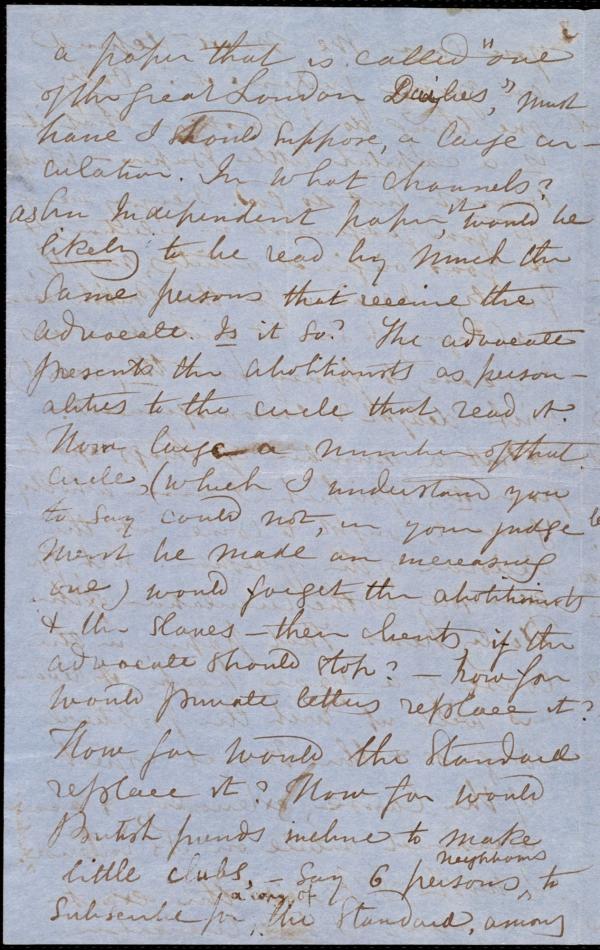 a paper that is called "one
of the great London Dailies," must
have I should suppose, a large cir-
culation. In what channels?
as an Independent paper, it would be
likely to be read by much the
same persons that receive the
advocate. Is it so? The advocate
presents the abolitionists as person-
alities to the circle that read it.
How large a number of that
circle, (which I understand you
to say could not, in your judge
ment be made an increasing
one) would forget the abolitionists
& the slaves - their clients, if the
advocate should stop? - how far
would private letters replace it?
How far would the Standard
replace it? How far would
British friends incline to make
little clubs, - say 6 persons, neighbours to
subscribe for, a copy of the Standard, among